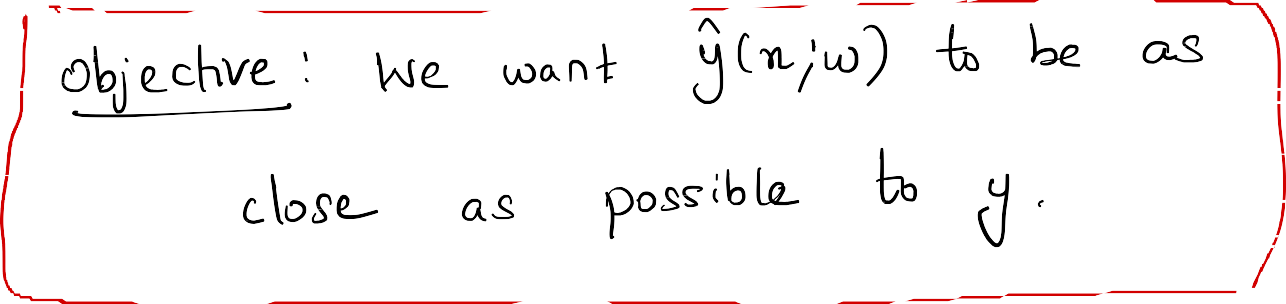 Objective: We want ŷ(x;w) to be as
close as possible to y.